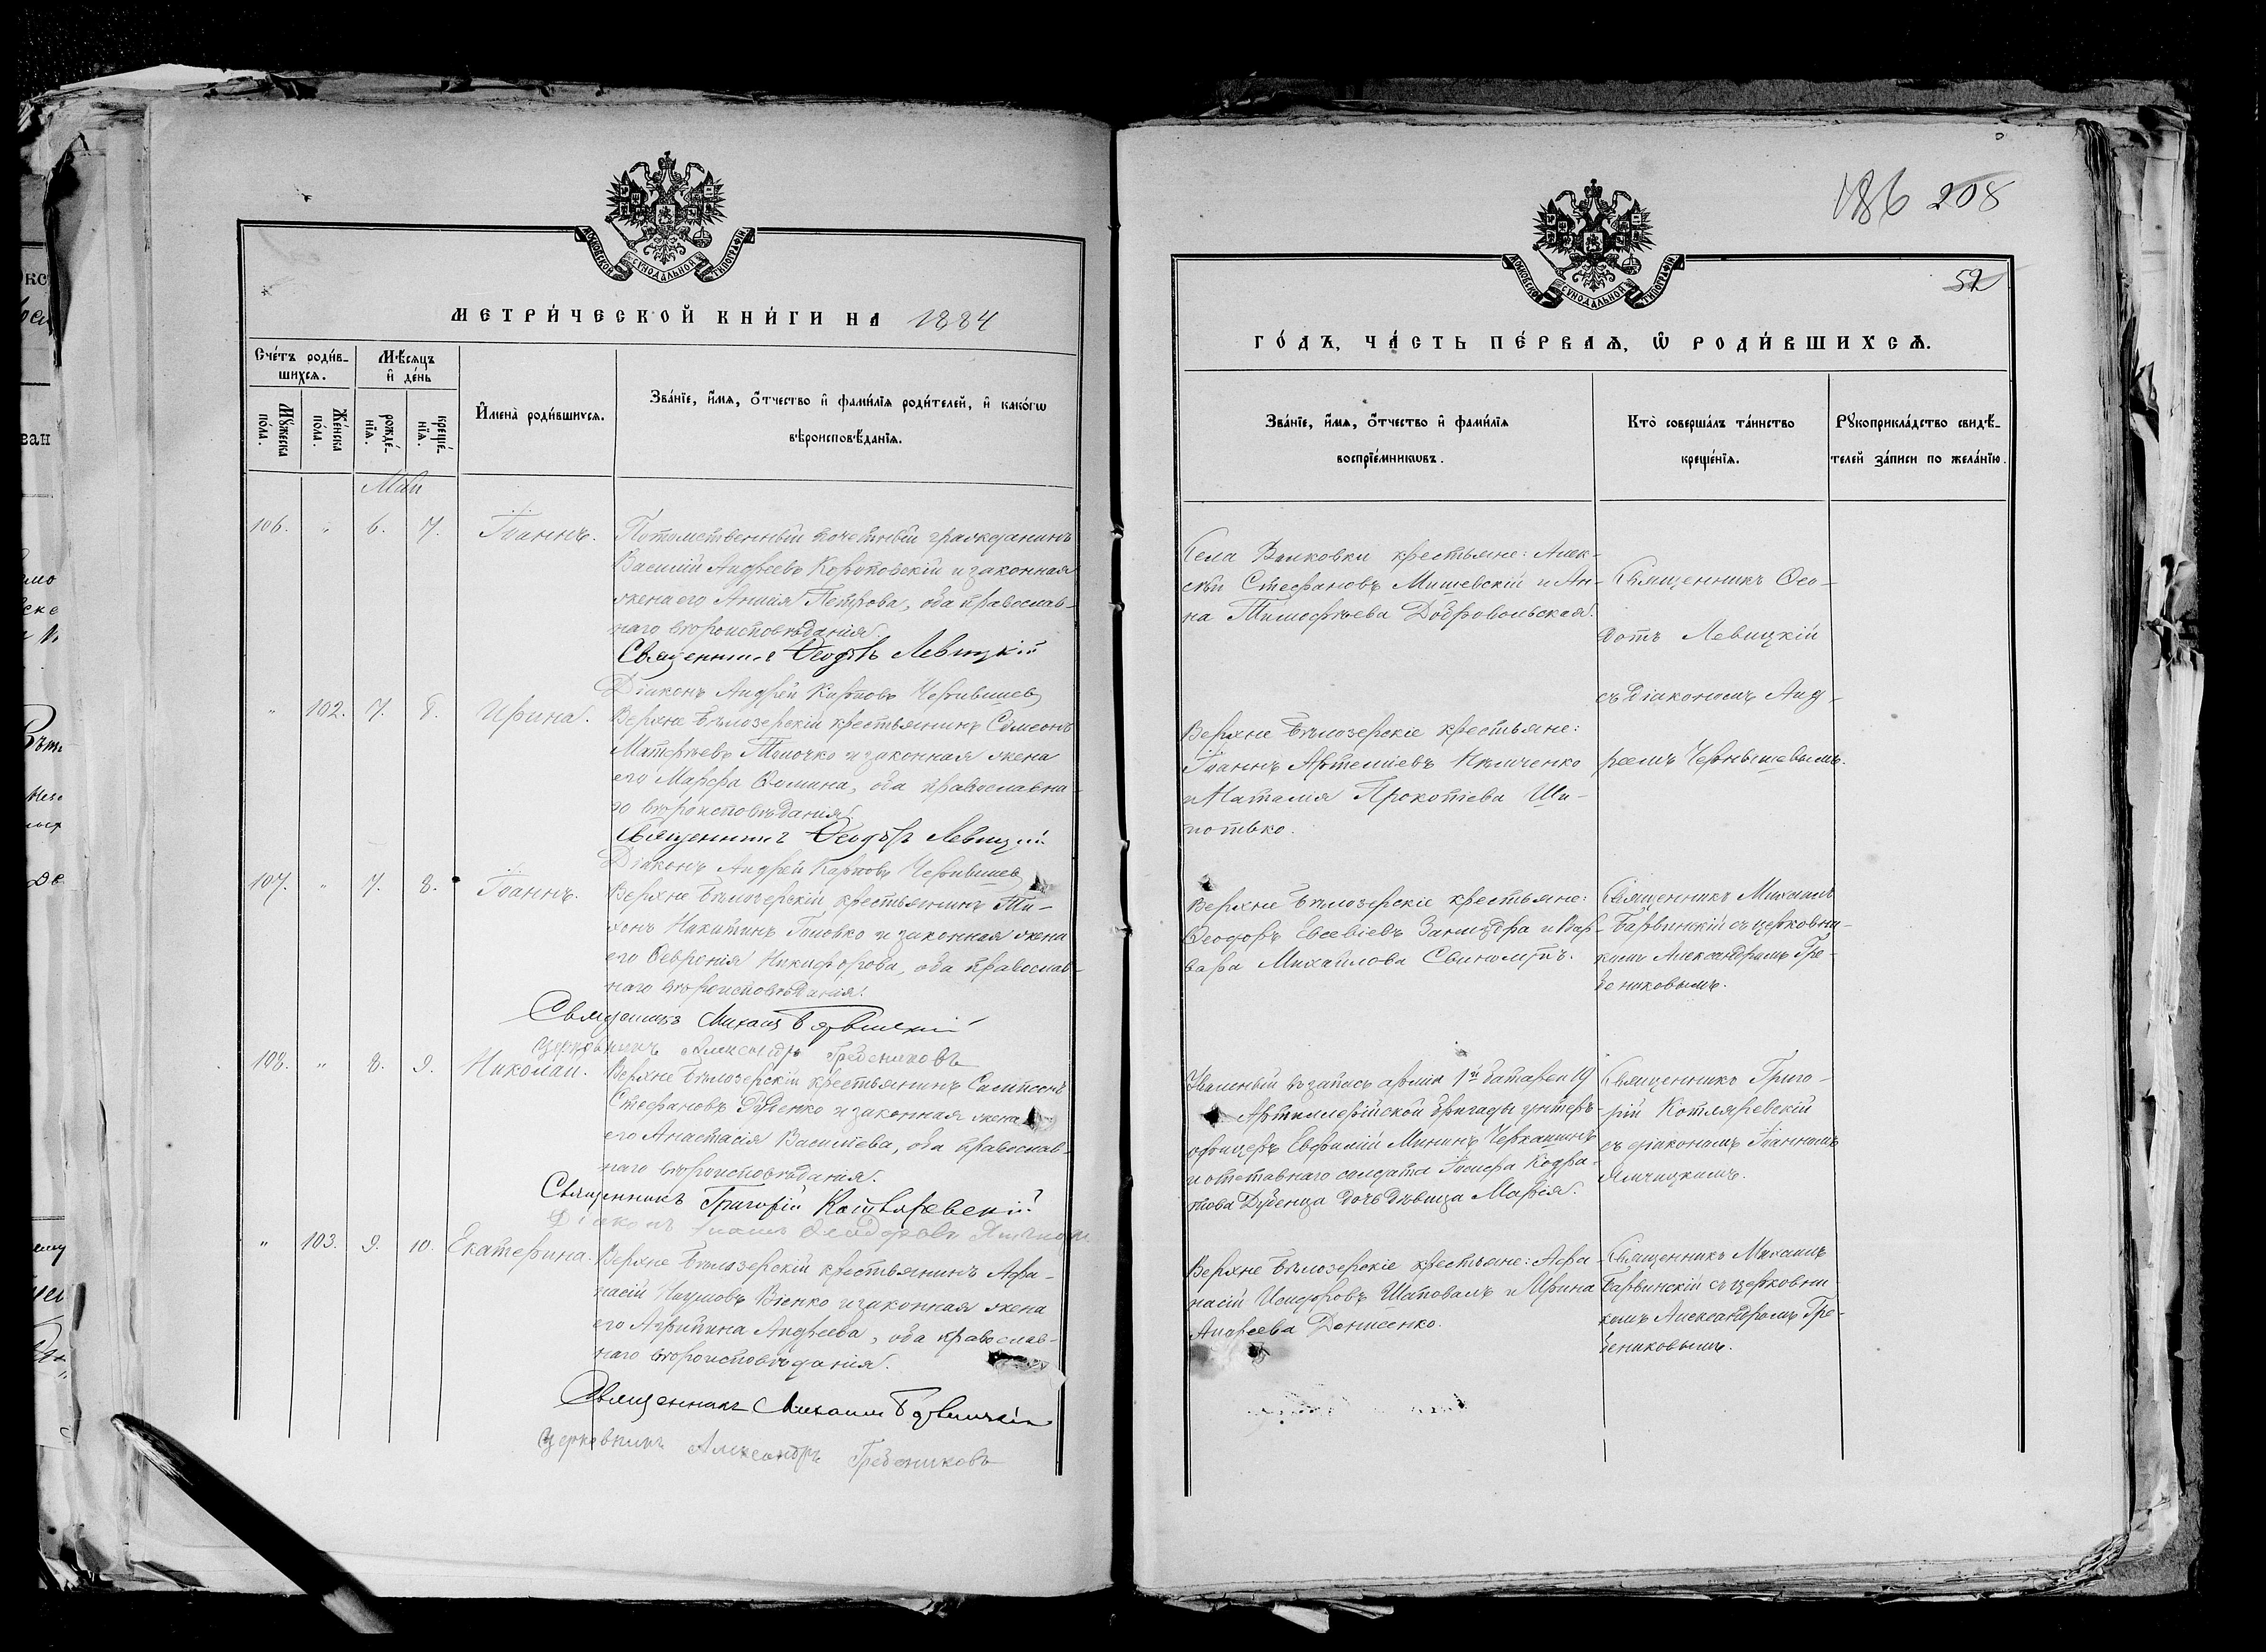 МОСКОВСКОЙ СѴНОДАЛЬНОЙ ТИПОГРАФІИ
МЕТРИ́ЧЕСКОЙ КНИ́ГИ НА 1884
Сче́тъ роди́в-
шихсѧ.
Мꙋ́жеска
по́ла.
Же́нска
по́ла.
Мѣ́сѧцъ
и҆ де́нь
рожде́-
нїѧ.
креще́-
нїѧ.
И҆мена̀ роди́вшихсѧ.
Зва́нїе, и҆́мѧ, ѻ҆́тчество и҆ фами́лїѧ роди́телей, и҆ како́гѡ
вѣроисповѣ́данїѧ.
Май
106. " 6. 7. Іоаннъ. Потомственный почетный гражданинъ
Василій Андреевъ Коротовскій и законная
жена его Анисія Петрова, оба православ-
наго вѣроисповѣданія.
Священникъ Ѳеодотъ Левицкій
Діаконъ Андрей Карповъ Чернышев
" 102. 7. 8. Ирина. Верхне Бѣлозерскій крестьянинъ Сѵмеонъ
Матфѣевъ и законная жена
его Марфа Ѳомина, оба православна-
го вѣроисповѣданія.
Священникъ Ѳеодотъ Левицкій
Діаконъ Андрей Карповъ Чернышев
107. " 7. 8. Іоаннъ. Верхне Бѣлозерскій крестьянинъ Ти-
хонъ Никитинъ Головко и законная жена
его Ѳевронія Никифорова, оба православ-
наго вѣроисповѣданія.
Священникъ Михаилъ Барвинскій
Церковникъ Александръ Гребениковъ
108. " 8. 9. Николай. Верхне Бѣлозерскій крестьянинъ Сампсонъ
Стефановъ и законная жена
его Анастасія Васильева, оба православ-
наго вѣроисповѣданія.
Священникъ Григорій Котляревскій
Діаконъ Іоаннъ Ѳеодоровъ
" 103. 9. 10. Екатерина. Верхне Бѣлозерскій крестьянинъ Афа-
насій Наумовъ Віенко и законная жена
его Агрипина Андреева, оба православ-
наго вѣроисповѣданія.
Священникъ Михаилъ Барвинскій
Церковникъ Александръ Гребениковъ
186 208
52
МОСКОВСКОЙ СѴНОДАЛЬНОЙ ТИПОГРАФІИ
ГО́ДЪ, ЧА́СТЬ ПЕ́РВАѦ, Ѡ҆ РОДИ́ВШИХСѦ.
Зва́нїе, и҆́мѧ, ѻ҆́тчество и҆ фами́лїѧ
воспрїе́мникѡвъ.
Кто̀ соверша́лъ та́инство
креще́нїѧ.
Рꙋкоприкла́дство свидѣ́-
телей за́писи по жела́нїю.
Села Волковки крестьяне: Алек-
сѣй Стефановъ Мишевскій и Ан-
на Тимофѣева Добровольская.
Священникъ Ѳео-
дотъ Левицкій
съ діакономъ Анд-
реемъ Чернышевымъ.
Верхне Бѣлозерскіе крестьяне:
Іоаннъ Артеміевъ Ильченко
и Наталія Прокопіева Ши-
потько.
Верхне Бѣлозерскіе крестьяне:
Ѳеодоръ Евсевіевъ и Вар-
вара Михайлова
Священникъ Михаилъ
Барвинскій съ церковни-
комъ Александромъ Гре-
бениковымъ.
Уволенный въ запасъ арміи 1й батареи 19
Артиллерійской бригады унтеръ-
офицеръ Евфимій Мининъ Черкашинъ
и отставнаго солдата Іосифа Кодра-
това дочь дѣвица Марія.
Священникъ Григо-
рій Котляревскій
съ діакономъ Іоанномъ
Верхне Бѣлозерскіе крестьяне: Афа-
насій Исидоровъ Шаповалъ и Ирина
Андреева Денисенко.
Священникъ Михаилъ
Барвинскій съ церковни-
комъ Александромъ Гре-
бениковымъ.